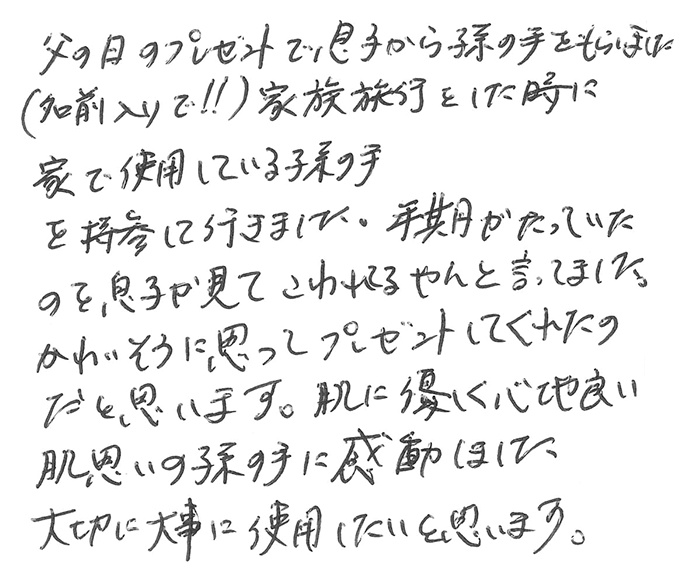 父の日のプレゼントで、息子から孫の手をもらいました
(名前入りで!!)家族旅行をした時に
家で使用している孫の手
を持参して行きました。年期がたっていた
のを、息子が見てこわれてるやんと言ってました。
かわいそうに思ってプレゼントしてくれたの
だと思います。肌に優しく心地良い
肌思いの孫の手に感動しました
大切に大事に使用したいと思います。